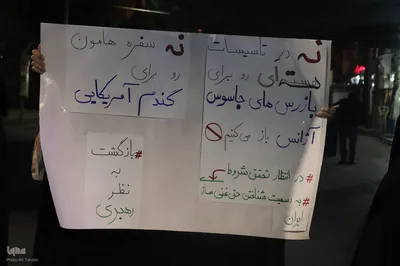 نه در تاسیسات
هسته‌ای رو برای
بازرس های جاسوس
آژانس باز می‌کنیم
# در انتظار تحقق شروط
# به رسمیت شناختن حق غنی ساز
ایران
نه سفره هامون
رو برای
گندم آمریکایی
#بازگشت
به
نظر
رهبری